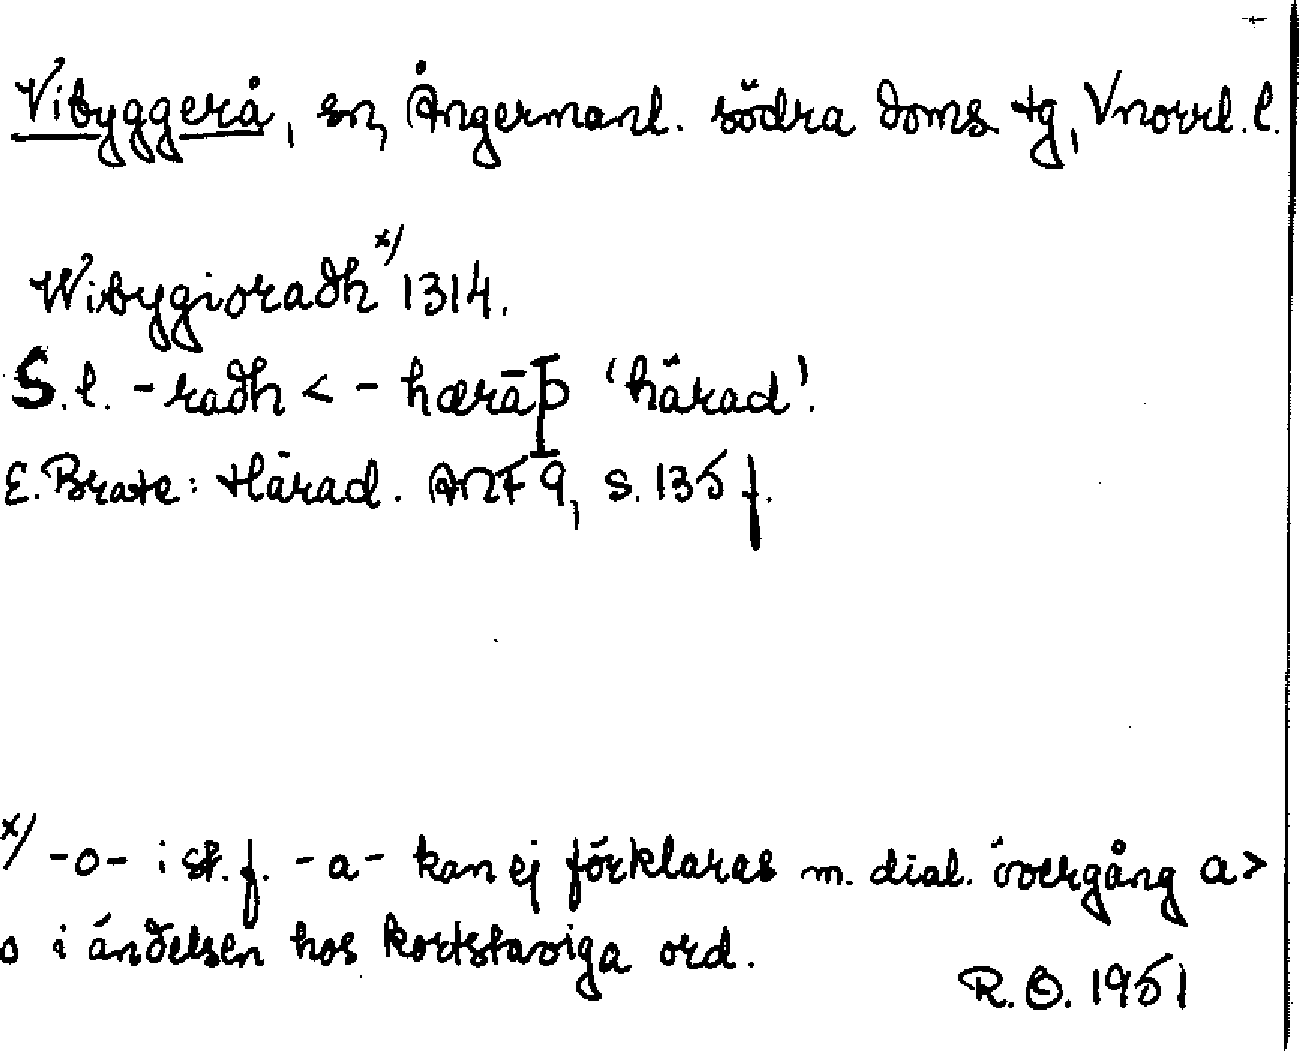 Vibyggerå, sn, Ångermanl. södra doms. tg, Vnorrl. l.
Wibygioradh x) 1314.
S. l. -radh < - hærāþ 'härad'.
E. Brate: Härad. ANF 9, s. 135 f.
x) -o- i st. f. -a- kan ej förklaras m. dial. övergång a>
o i ändelsen hos kortstaviga ord.
R. O. 1951